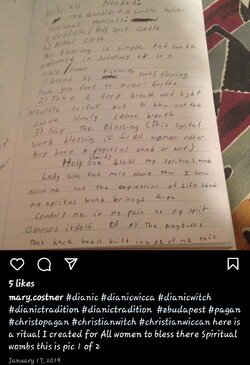 Materials Needed:
1 red candle + a candle holder
Optional Materials
1) Goddess / Holy Spirit candle
2) Altar cloth
This blessing is simple and can be
performed in solitary or in a
circle former
by roots flowing
from you feet to Mother Earth
2) Take a deep breath and light
candle carfull Not to blow out the
candle slowly release breath
3) Say The Blessing (This Spiritual
womb blessing is for All women rather
they have A physical womb or not)
(Saint)
Holy one bless my spiritual womb
Lady who has more Name than I know
bless me and the expression of life that
my spirtal womb brinsgs forth
Center me in my pain as my spirit
cleanses itself OF All The Negtives
That have been built inside of me this
mary.costner #dianic #dianicwicca #dianicwitch
#dianictradition #dianictradtition #zbudapest #pagan
#christopagan #christianwitch #christianwiccan here is
a ritual I created for All women to bless there Spiritual
wombs this is pic 1 of 2
January 17, 2019